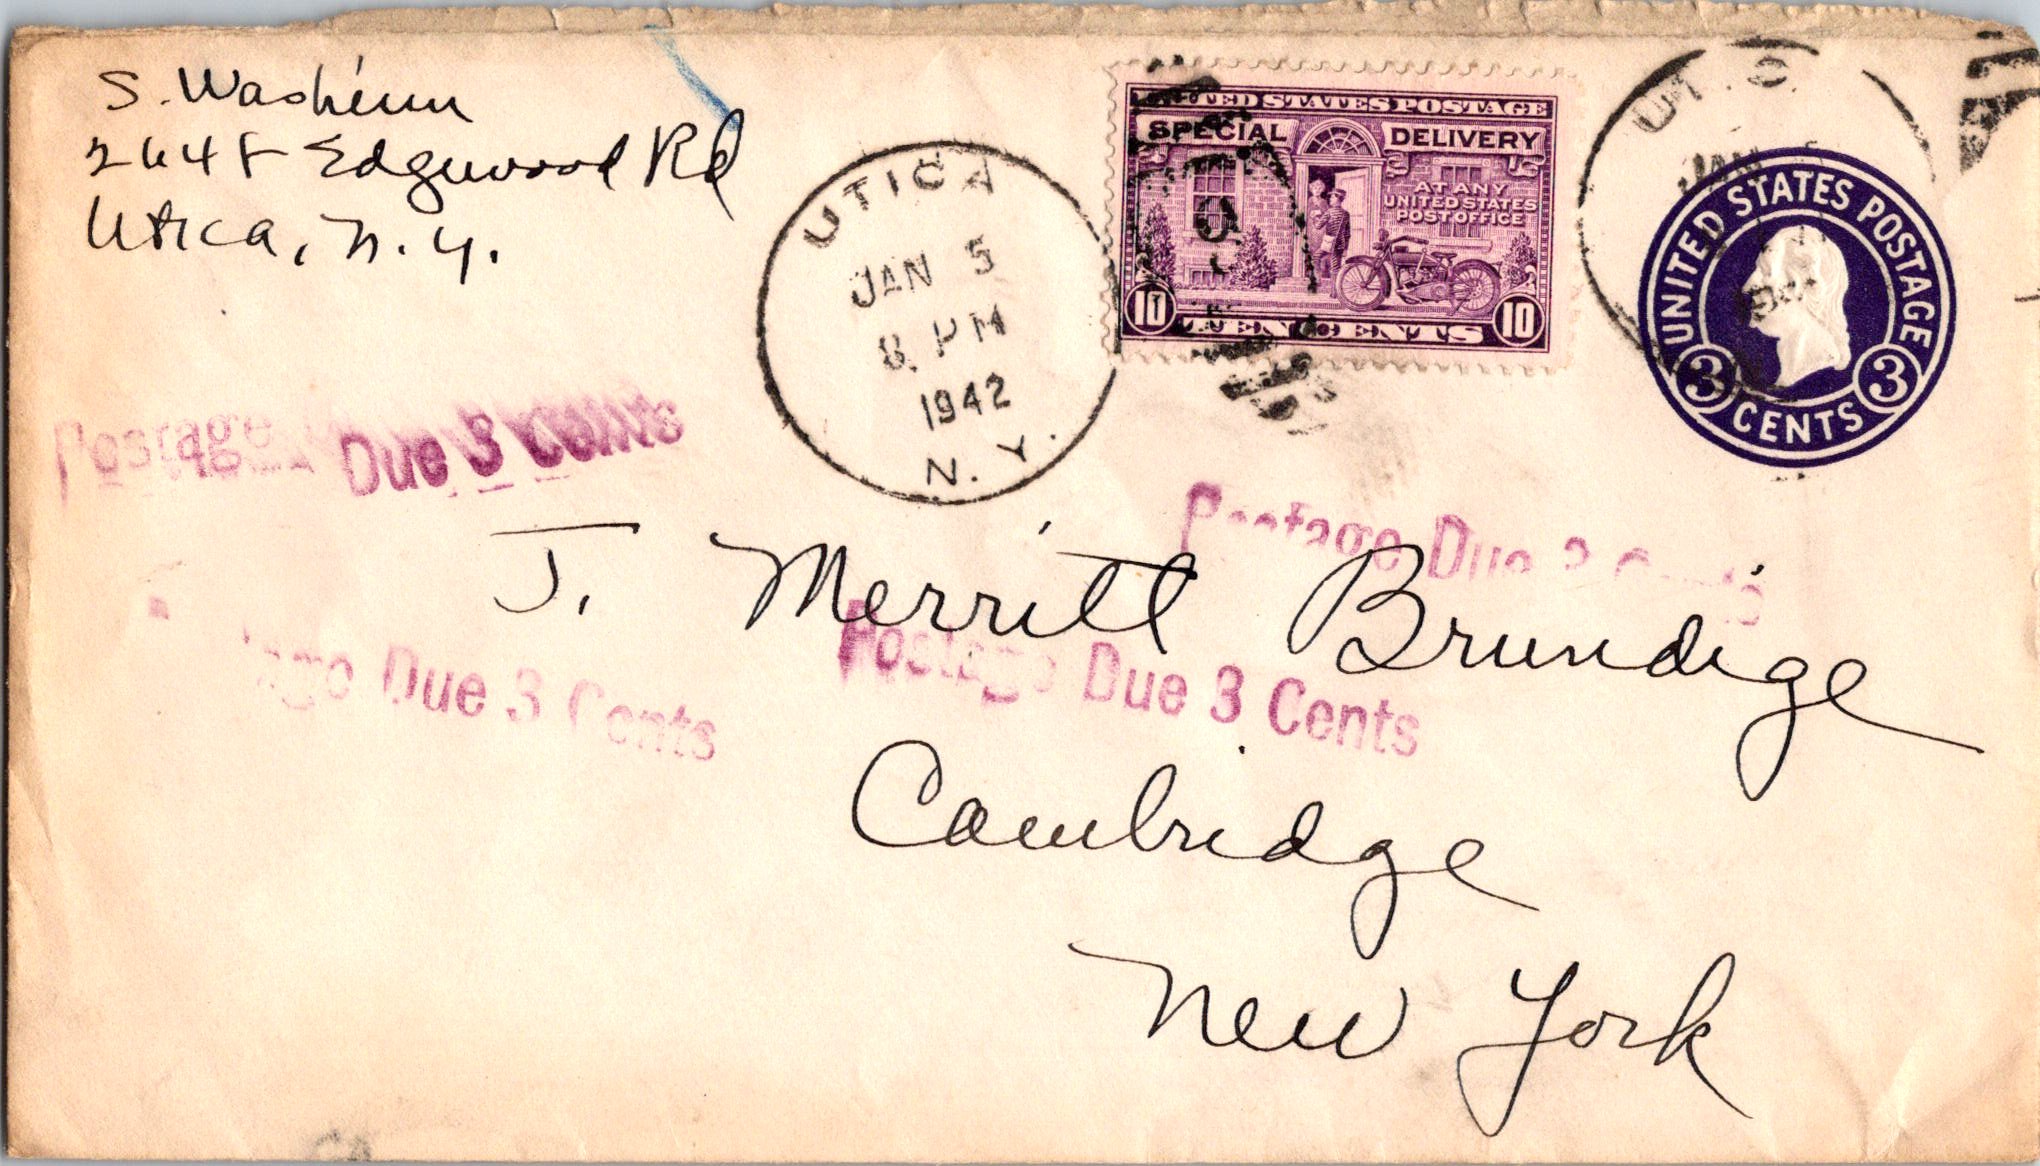 S. Washeim
2648 Edgewood Rd
Utica, N.Y.
UTICA
JAN 5
8 PM
1942
N.Y.
UNITED STATES POSTAGE
SPECIAL DELIVERY
AT ANY
UNITED STATES
POST OFFICE
10 TEN CENTS 10
UTIC
JAN
UNITED STATES POSTAGE
3 CENTS 3
Postage Due 3 Cents
Postage Due 3 Cents
J. Merritt Brundige
Postage Due 3 Cents
tage Due 3 Cents
Cambridge
New York